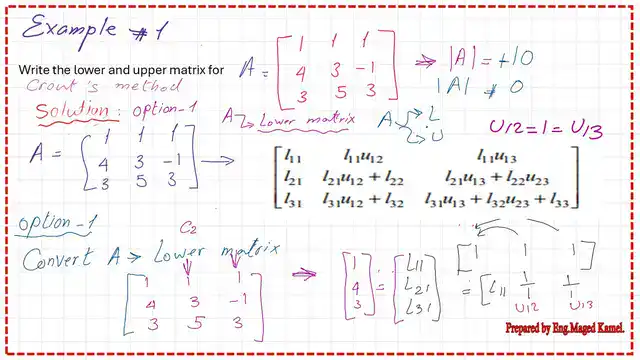 Example #1
Write the lower and upper matrix for
Crout's method
A = [ 1 1 1
4 3 -1
3 5 3 ] ⇒ |A| = +10
|A| ≠ 0
Solution: option-1
A → Lower matrix
A → L
→ U
U12 = 1 = U13
A = [ 1 1 1
4 3 -1
3 5 3 ] →
[ l11 l11u12 l11u13
l21 l21u12 + l22 l21u13 + l22u23
l31 l31u12 + l32 l31u13 + l32u23 + l33 ]
option-1
C2
Convert A → Lower matrix
[ 1 1 1
4 3 -1
3 5 3 ] ⇒
[ 1
4
3 ] = [ L11
L21
L31 ]
[ 1 1 1 ]
= [ L11 1/1 1/1 ]
U12 U13
Prepared by Eng.Maged Kamel.